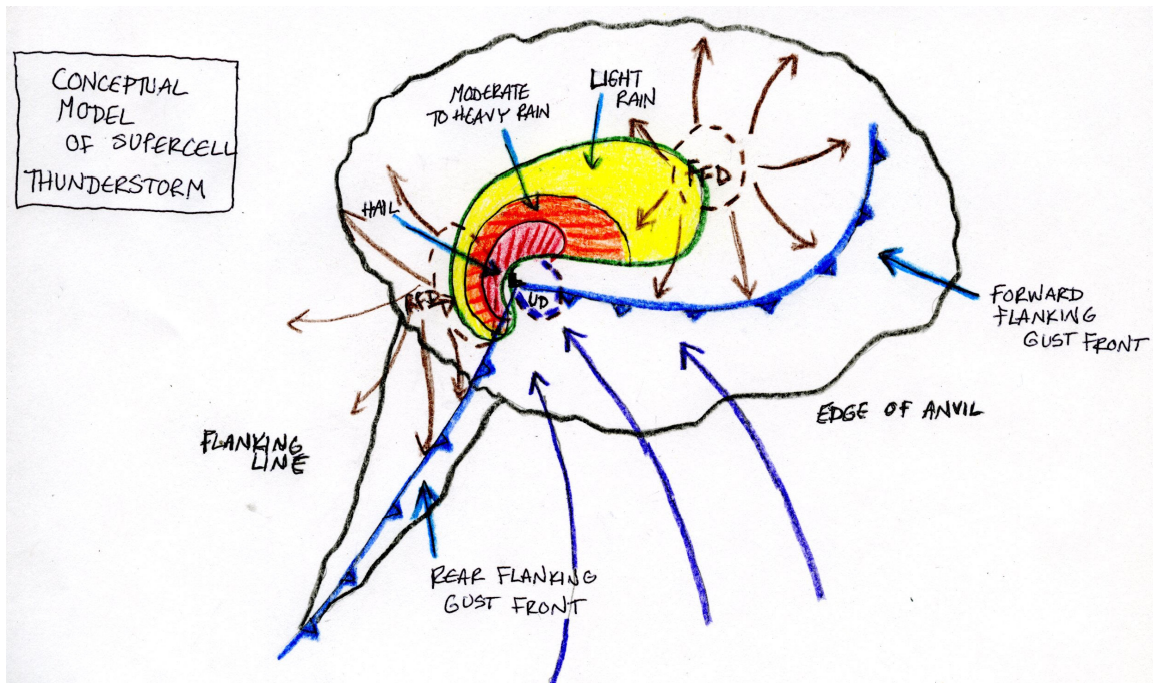 CONCEPTUAL
MODEL
OF SUPERCELL
THUNDERSTORM
MODERATE
TO HEAVY RAIN
LIGHT
RAIN
FFD
HAIL
RFD
UD
FORWARD
FLANKING
GUST FRONT
EDGE OF ANVIL
FLANKING
LINE
REAR FLANKING
GUST FRONT